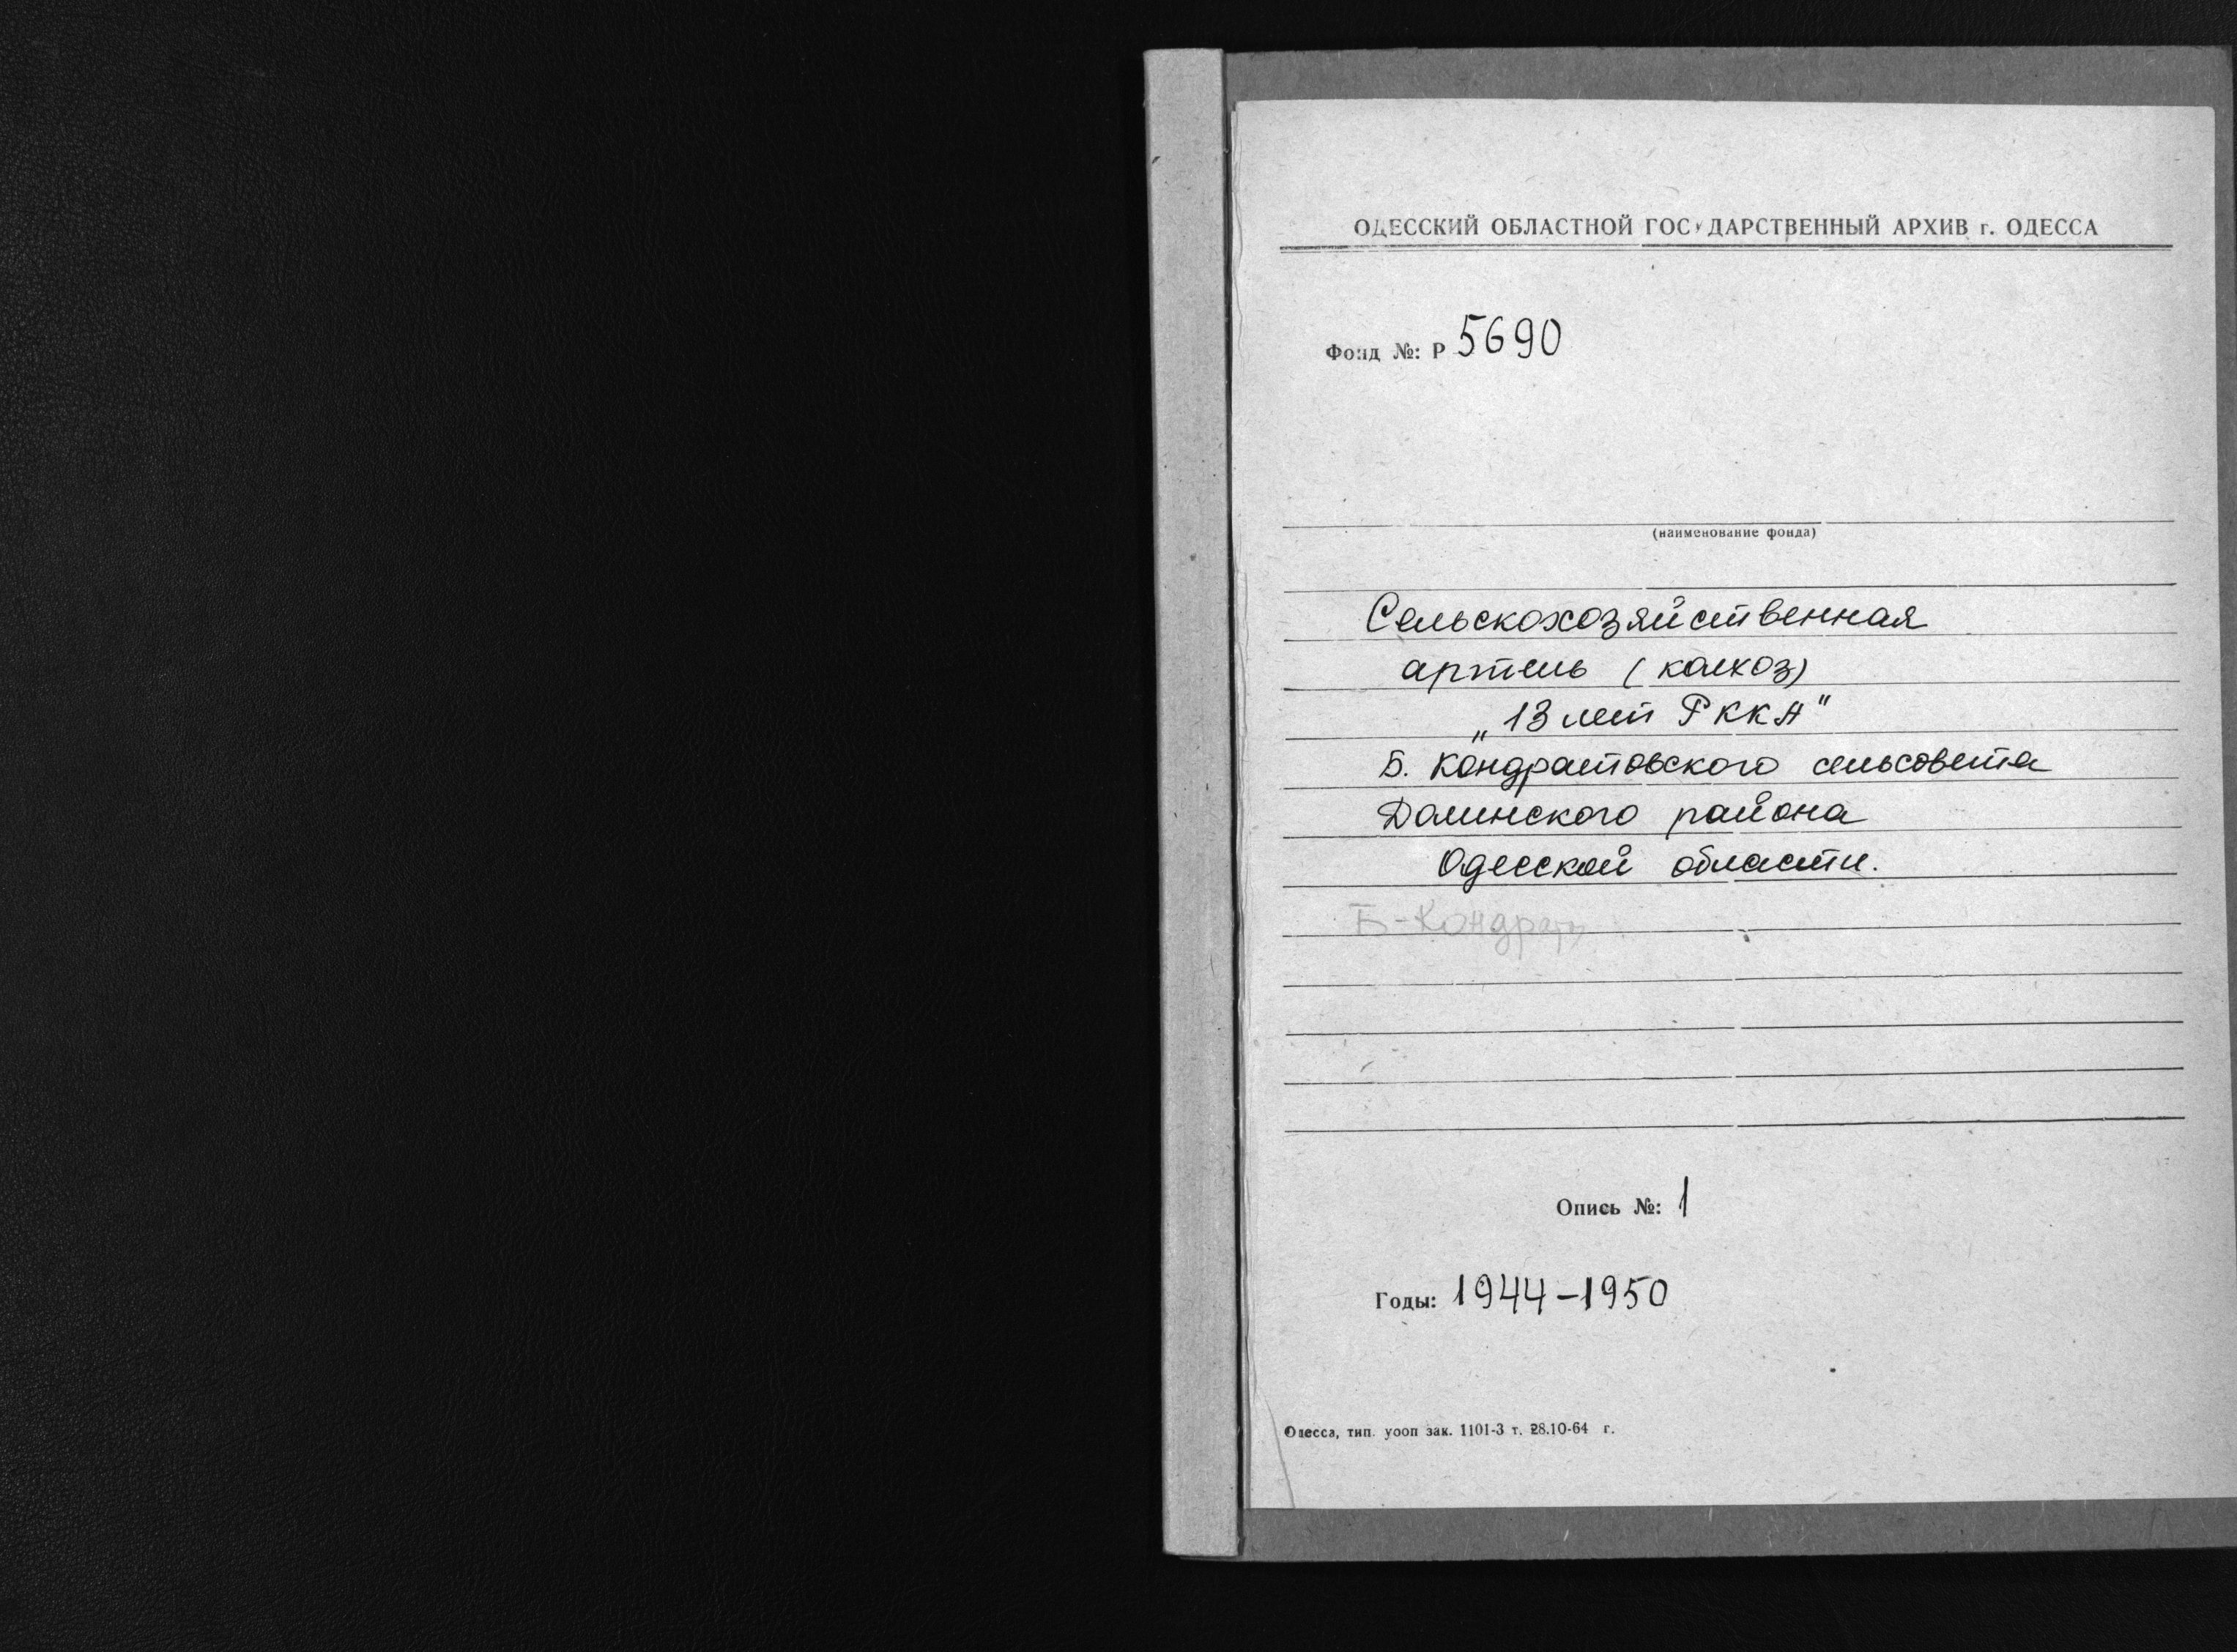 ОДЕССКИЙ ОБЛАСТНОЙ ГОСУДАРСТВЕННЫЙ АРХИВ г. ОДЕССА
Фонд №: Р 5690
(наименование фонда)
Сельскохозяйственная
артель (колхоз)
„13 лет РККА"
Б. Кондратовского сельсовета
Долинского района
Одесской области.
Б-Кондрат
Опись №: 1
Годы: 1944-1950
Одесса, тип. уооп зак. 1101-3 т. 28.10-64 г.